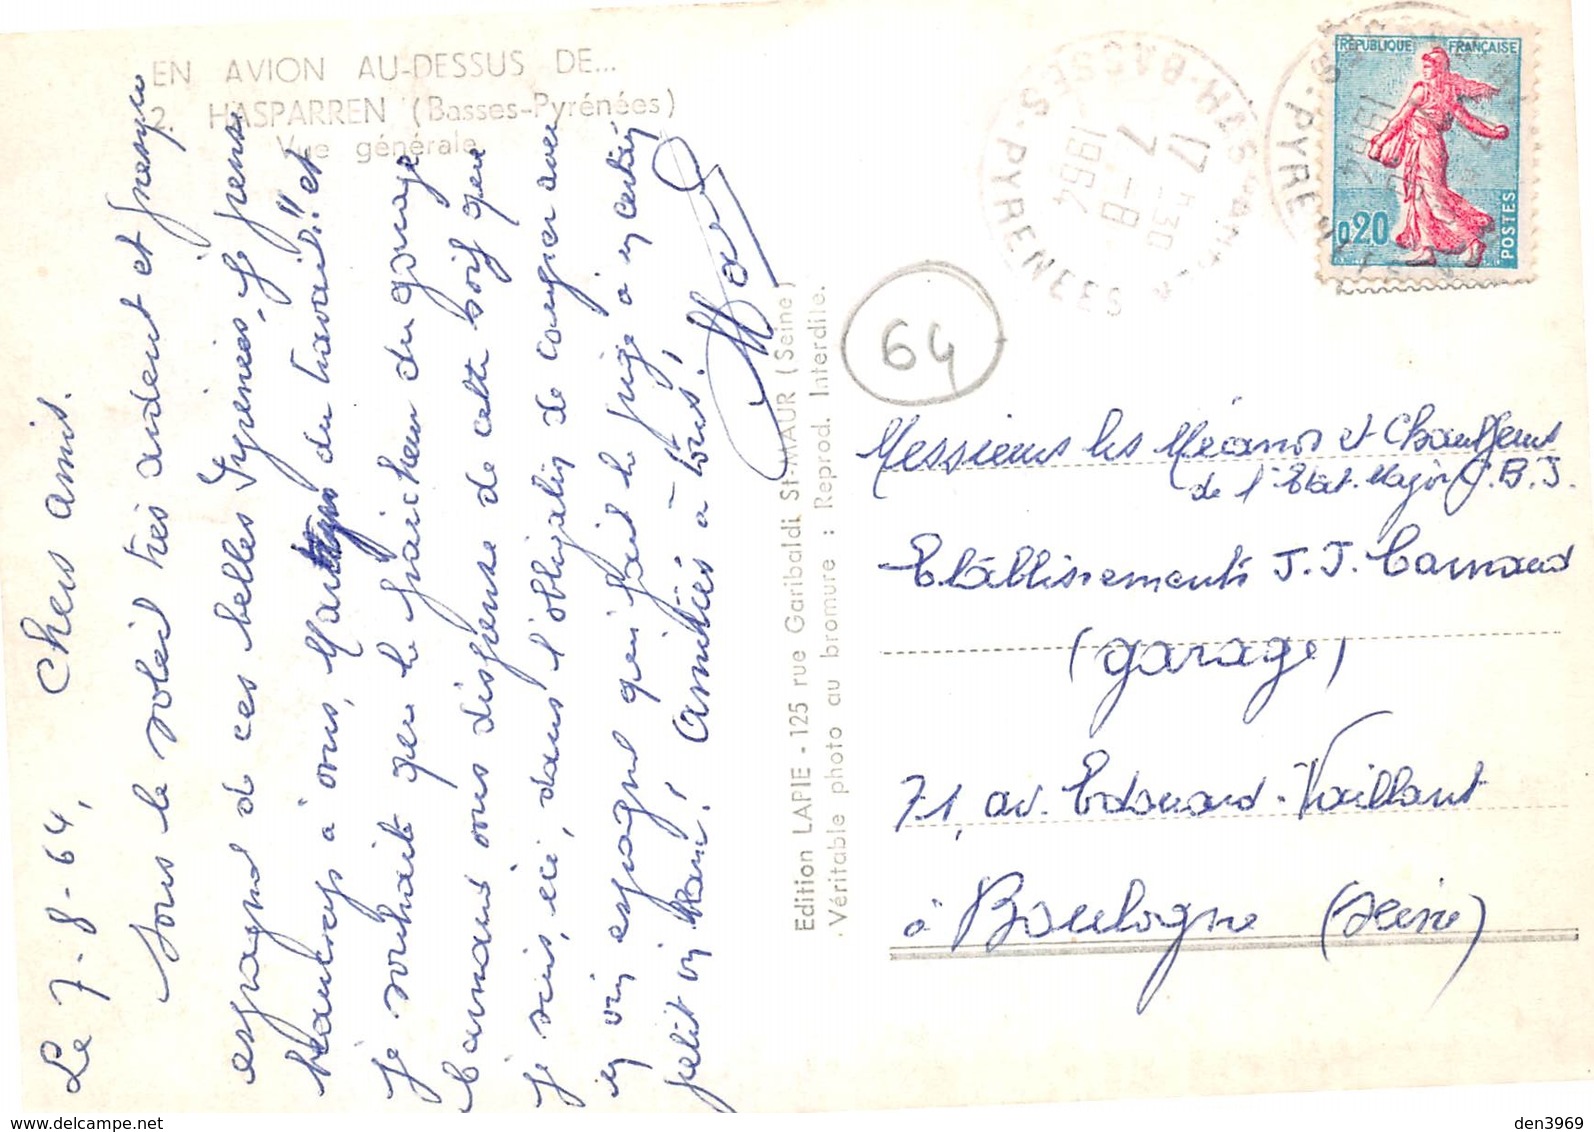 EN AVION AU-DESSUS DE...
2. HASPARREN (Basses-Pyrénées)
Vue générale
Le 7-8-64,
Chers amis.
Sous le soleil très ardent et presque
espagnol de ces belles Pyrénées, je pense
beaucoup à vous, Martyrs du travail !! et
je souhaite que la fraîcheur du garage
Carnaud vous dispense de cette soif que
je suis, ici, dans l'obligation de couper avec
un vin espagnol qui fait la pige à un certain
petit vin blanc ! Amitiés à tous !
Edition LAPIE - 125 rue Garibaldi St-MAUR (Seine)
Véritable photo au bromure : Reprod. Interdite.
HASPARREN
BASSES-PYRENEES
17 H 30
7 -8
1964
REPUBLIQUE FRANÇAISE
0,20
POSTES
64
Messieurs les Mécanos et Chauffeurs
de l'Etat-Major J.B.J.
Etablissements J.J. Carnaud
(garage)
71, av. Edouard-Vaillant
à Boulogne (Seine)
den3969